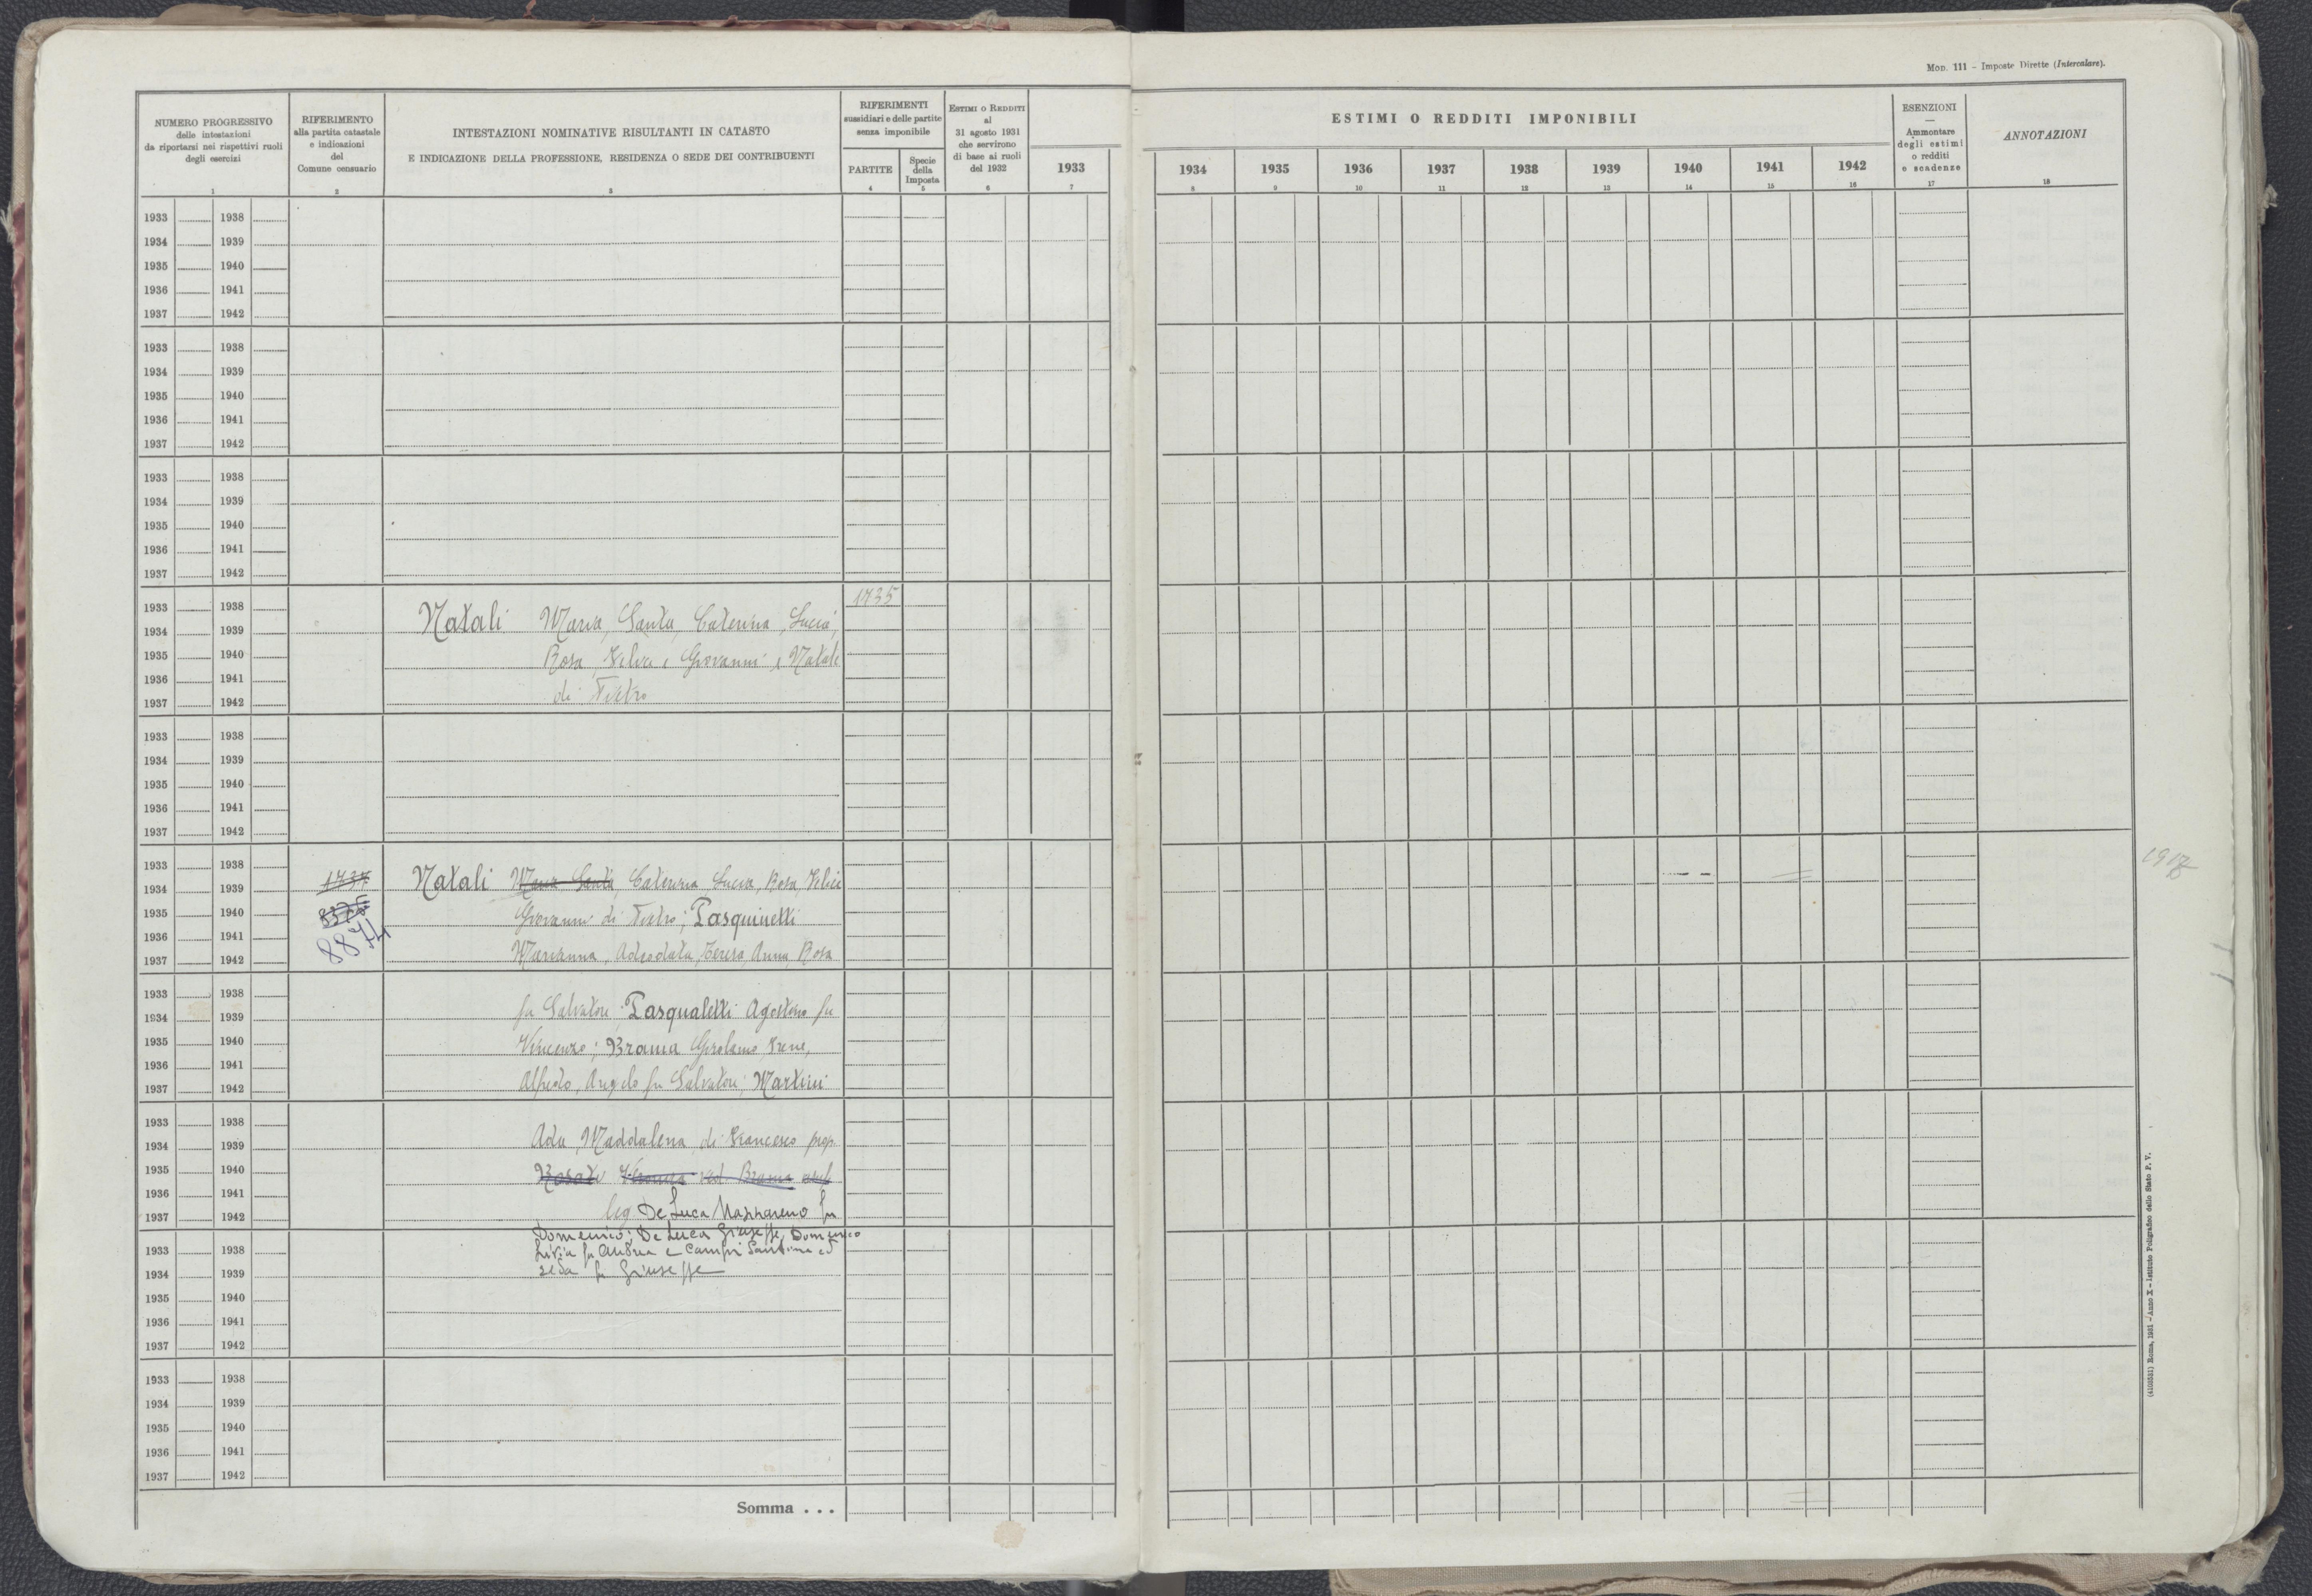 Mod. 111 - Imposte Dirette (Intercalare).
NUMERO PROGRESSIVO
delle intestazioni
da riportarsi nei rispettivi ruoli
degli esercizi
1
RIFERIMENTO
alla partita catastale
e indicazioni
del
Comune censuario
2
INTESTAZIONI NOMINATIVE RISULTANTI IN CATASTO
E INDICAZIONE DELLA PROFESSIONE, RESIDENZA O SEDE DEI CONTRIBUENTI
3
RIFERIMENTI
sussidiari e delle partite
senza imponibile
PARTITE
4
Specie
della
Imposta
5
Estimi o Redditi
al
31 agosto 1931
che servirono
di base ai ruoli
del 1932
6
1933
7
ESTIMI O REDDITI IMPONIBILI
1934 1935 1936 1937 1938 1939 1940 1941 1942
8 9 10 11 12 13 14 15 16
ESENZIONI
—
Ammontare
degli estimi
o redditi
e scadenze
17
ANNOTAZIONI
18
1933 1938
1934 1939
1935 1940
1936 1941
1937 1942
1933 1938
1934 1939
1935 1940
1936 1941
1937 1942
1933 1938
1934 1939
1935 1940
1936 1941
1937 1942
1933 1938 1735
1934 1939 Natali Maria, Santa, Caterina, Lucia,
1935 1940 Rosa, Felice, Giovanni, Natale
1936 1941
1937 1942 di Pietro
1933 1938
1934 1939
1935 1940
1936 1941
1937 1942
1933 1938
1934 1939 1737 Natali Maria Santa, Caterina, Lucia, Rosa, Felice
1935 1940 8375 Giovanni di Pietro; Pasquinelli
1936 1941 8874
1937 1942 Marianna, Adeodata, Teresa, Anna, Rosa
1933 1938
1934 1939 fu Salvatore; Pasqualetti Agostino fu
1935 1940 Vincenzo; Brama Girolamo, Irene,
1936 1941
1937 1942 Alfredo, Angelo fu Salvatore; Martini
1933 1938
1934 1939 Ada, Maddalena di Francesco prop.
1935 1940 Rosati ved. Brama usuf
1936 1941
1937 1942 leg De Luca Nazzareno fu
Domenico; De Luca Giuseppe, Domenico
1933 1938 Livia fu Andrea e Campi Santina ed
1934 1939 fu Giuseppe
1935 1940
1936 1941
1937 1942
1933 1938
1934 1939
1935 1940
1936 1941
1937 1942
Somma . . .
(4103531) Roma, 1931 - Anno X - Istituto Poligrafico dello Stato P. V.